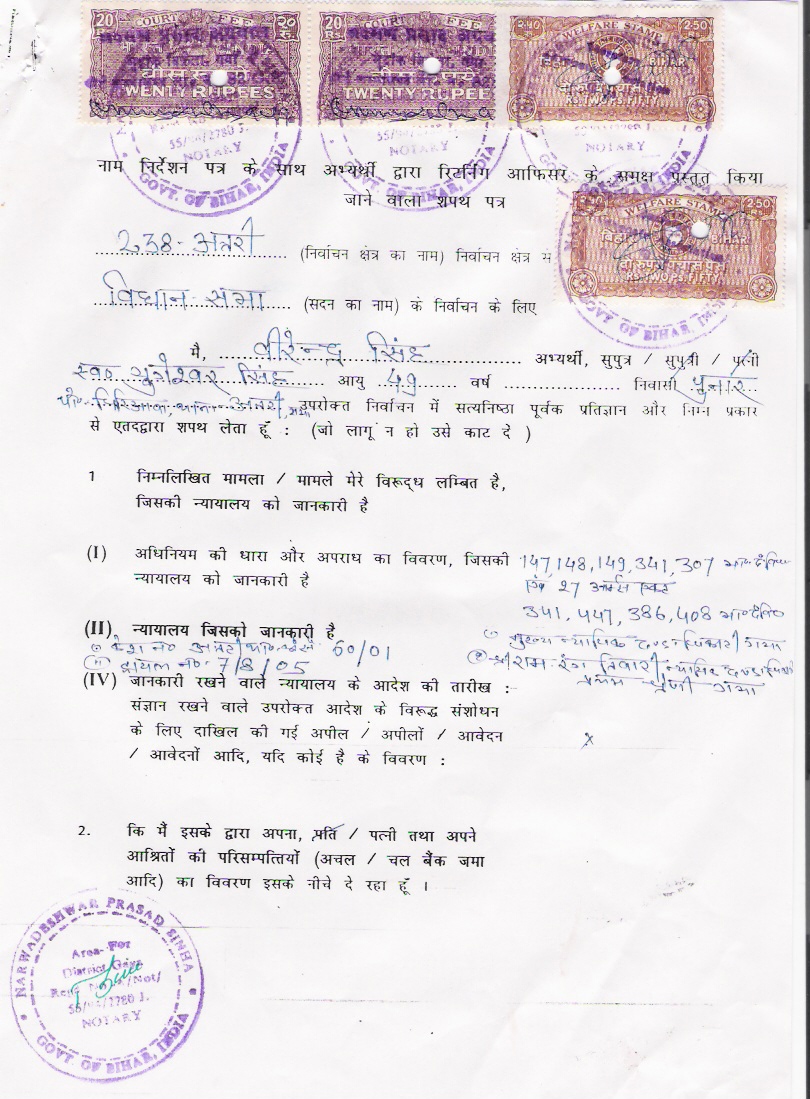 20 COURT FEE २०
RS. रु.
बीस रुपये
TWENTY RUPEES
20 COURT FEE
RS.
बीस रुपये
TWENTY RUPEE
2.40 WELFARE STAMP 2.50
BIHAR
RS. TWO PS. FIFTY
55/94/2780 J.
NOTARY
GOVT. OF BIHAR, INDIA
55/94/2780 J.
NOTARY
GOVT. OF BIHAR, INDIA
NOTARY
नाम निर्देशन पत्र के साथ अभ्यर्थी द्वारा रिटर्निंग आफिसर के समक्ष प्रस्तुत किया
जाने वाला शपथ पत्र
WELFARE STAMP 2.50
BIHAR
RS. TWO PS. FIFTY
GOVT. OF BIHAR, INDIA
238-अतरी (निर्वाचन क्षेत्र का नाम) निर्वाचन क्षेत्र से
विधान सभा (सदन का नाम) के निर्वाचन के लिए
मै, वीरेन्द्र सिंह अभ्यर्थी, सुपुत्र / सुपुत्री / पत्नी
स्व० सिंह आयु 49 वर्ष निवासी
थाना- अतरी, गया उपरोक्त निर्वाचन में सत्यनिष्ठा पूर्वक प्रतिज्ञान और निम्न प्रकार
से एतदद्वारा शपथ लेता हूँ : (जो लागू न हो उसे काट दे )
1 निम्नलिखित मामला / मामले मेरे विरूद्ध लम्बित है,
जिसकी न्यायालय को जानकारी है
(I) अधिनियम की धारा और अपराध का विवरण, जिसकी 147,148,149,341,307
न्यायालय को जानकारी है 27
341,447,386,408
(II) न्यायालय जिसको जानकारी है
केश न० अतरी 60/01
ट्रायल नं० 7/8/05
मुख्य न्यायिक गया
श्री राम तिवारी न्यायिक
प्रथम श्रेणी गया
(IV) जानकारी रखने वाले न्यायालय के आदेश की तारीख :
संज्ञान रखने वाले उपरोक्त आदेश के विरूद्ध संशोधन
के लिए दाखिल की गई अपील / अपीलों / आवेदन
/ आवेदनों आदि, यदि कोई है के विवरण : x
2. कि मैं इसके द्वारा अपना, पति / पत्नी तथा अपने
आश्रितों की परिसम्पत्तियों (अचल / चल बैंक जमा
आदि) का विवरण इसके नीचे दे रहा हूँ ।
NARWADESHWAR PRASAD SINHA
Area- For
District Gaya
55/94/2780 J.
NOTARY
GOVT. OF BIHAR, INDIA